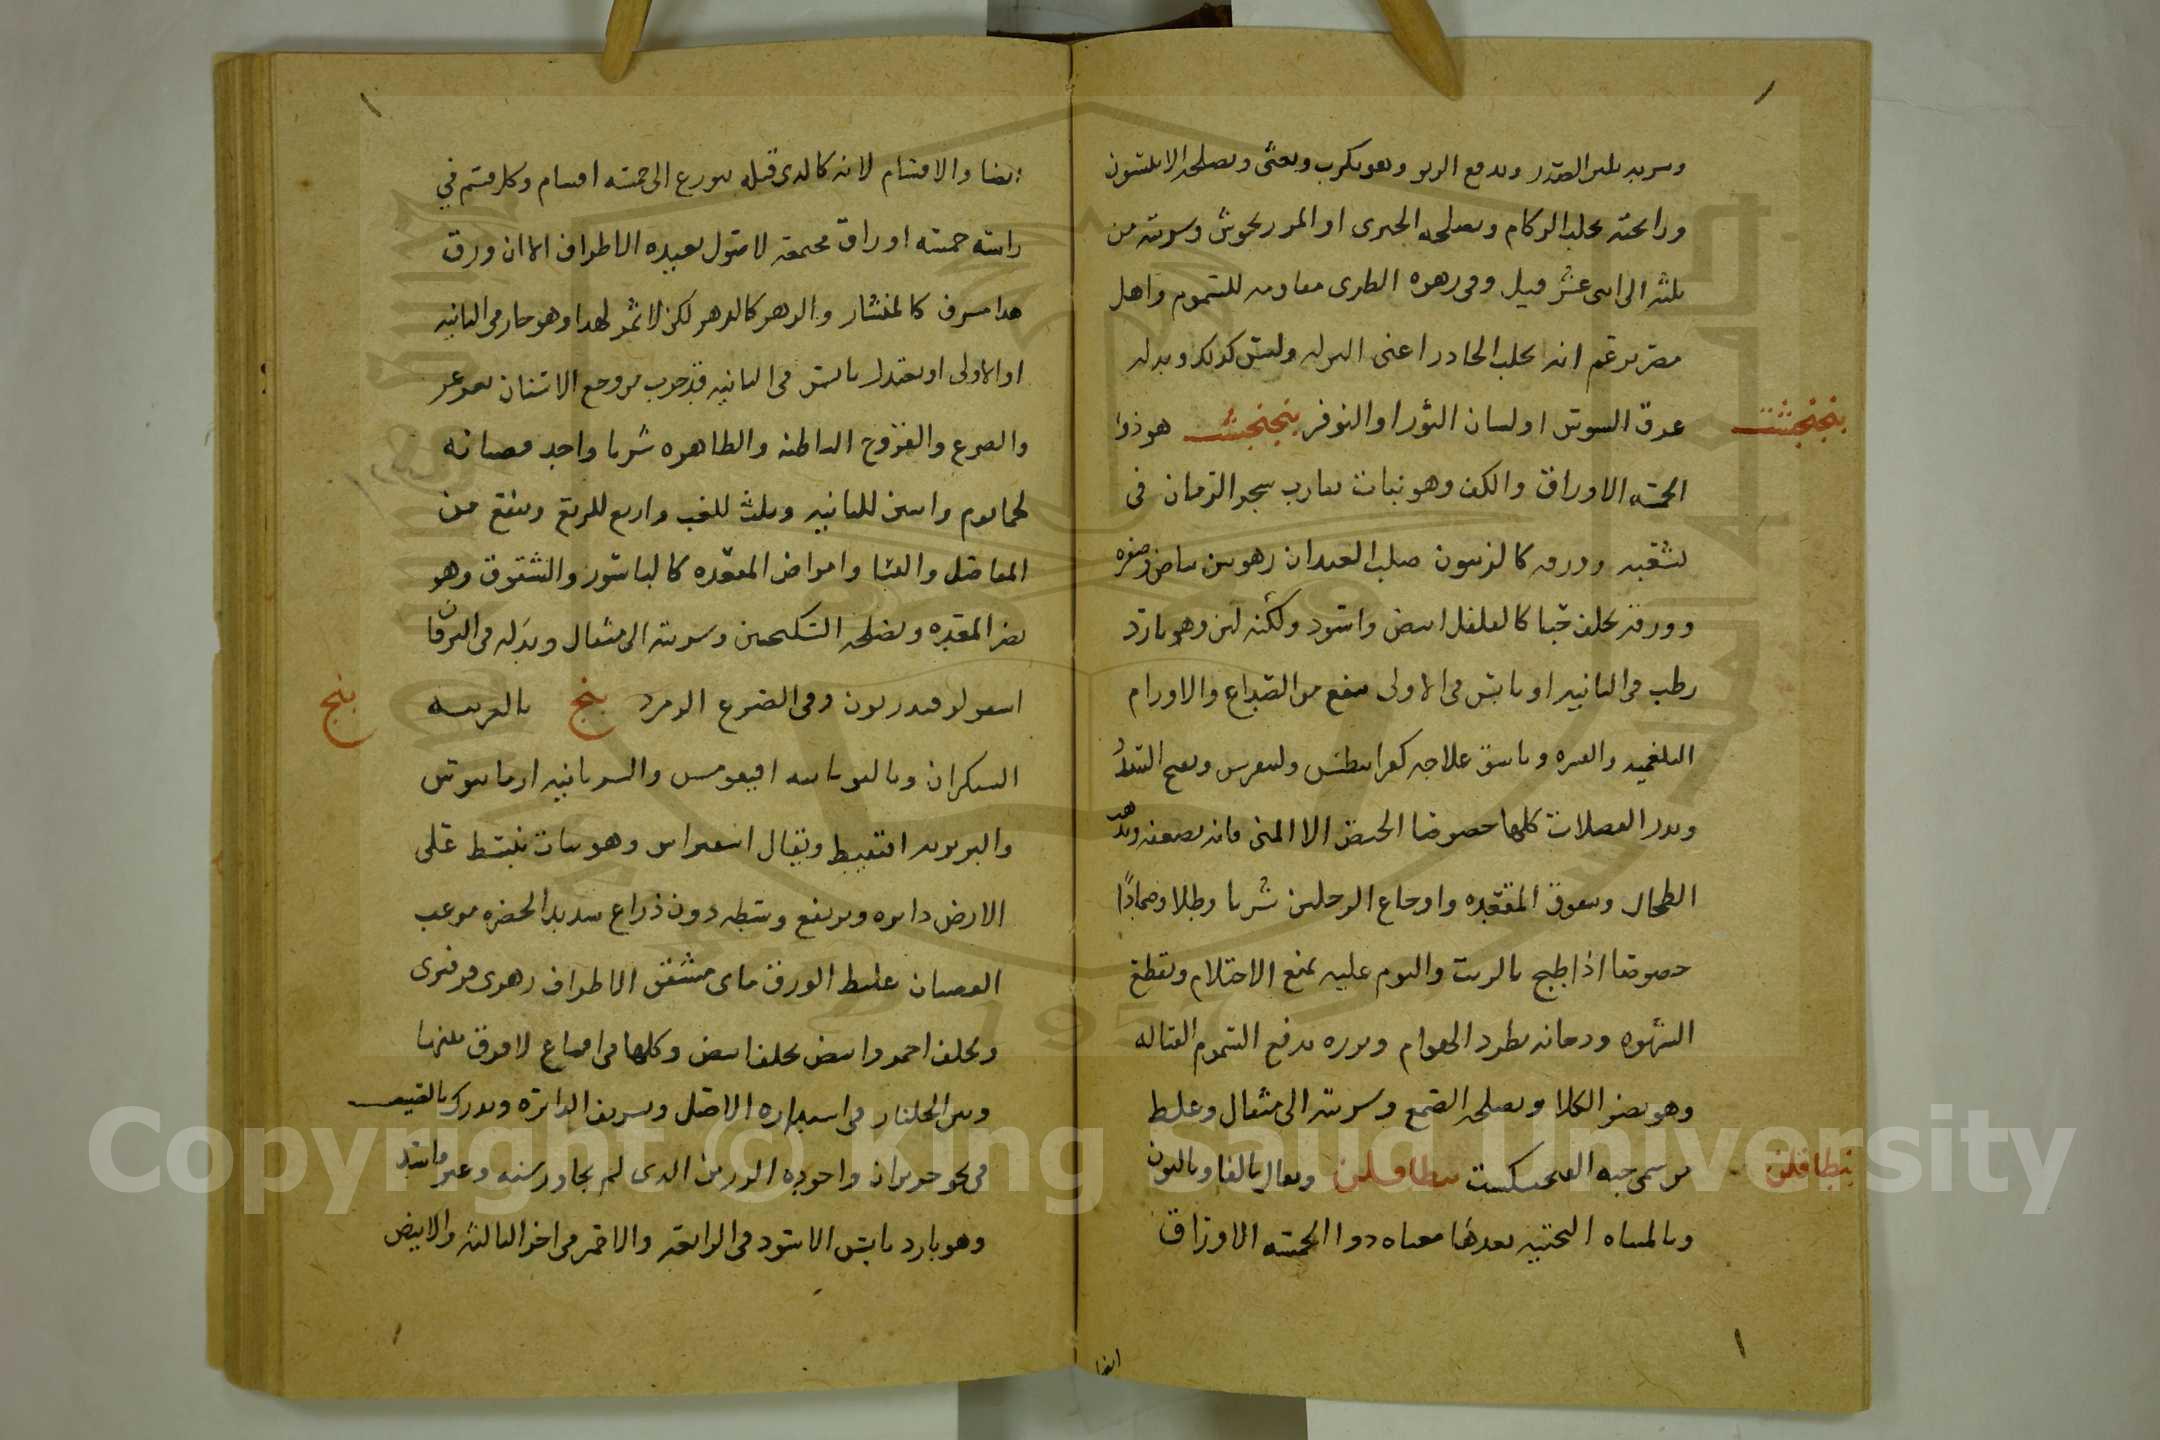 وسريه يلين الصدر ويدفع الربو وهو يكرب ويعثى ويصلحه الابلسون
ورائحته تجلب الزكام ويصلحه الخيرى او المرزنجوش وشربته من
ثلثه الى اثنى عشر وقيل وفى زهره الطرى مقاومه للسموم واهل
مصر تزعم انه يجلب الحادر اعنى النزله وليس كذلك وبدله
عرق السوس او لسان الثور او النوفر بنجنجشت هو ذوا
بنجنجشت
الخمسه الاوراق والكف وهو نبات يقارب شجر الرمان فى
تشعبه وورقه كالزيتون صلب العيدان زهره بين بياض وصفره
وورقه يخلف حبا كالفلفل ابيض واسود ولكنه لين وهو بارد
رطب فى الثانيه او يابس فى الاولى ينفع من الصداع والاورام
البلغميه والعسره وما شق علاجه كقرانيطس وليثغرس ويفتح السدد
ويدر الفضلات كلها خصوصا الحيض الا المنى فانه يضعفه ويذهب
الطحال وشقوق المقعده واوجاع الرجلين شربا وطلا وضمادًا
خصوصا اذا طبخ بالزيت والنوم عليه يمنع الاحتلام ويقطع
الشهوه ودخانه يطرد الهوام وبزره يدفع السموم القتاله
وهو يضر الكلا ويصلحه الصمغ وشربته الى مثقال وغلط
من سمى حبه الفنجنكست بنطافلن ويقال بالفا وبالنون
بنطافلن
وبالمثناه التحتيه بعدها معناه ذوا الخمسه الاوراق
ايضا
ايضا والاقسام لانه كالذى قبله يتوزع الى خمسه اقسام وكل قسم فى
راسه خمسه اوراق مجتمعه لاصول بعيده الاطراف الا ان ورق
هذا مشرف كالمنشار والزهر كالزهر لكن لا ثمر لهذا وهو حار فى الثانيه
او الاولى او معتدل يابس فى الثانيه قد جرب من وجع الاسنان تغرغر
والصرع والقروح الباطنه والظاهره شربا واحد قضبانه
لحما يوم واثنين للنانيه وثلث للغب واربع للربع وينفع من
المفاصل والنسا وامراض المقعده كالباسور والشقوق وهو
يضر المعده ويصلحه السكنجبين وشربته الى مثقال وبدله فى اليرقان
اسقولوقندريون وفى الصرع الزمرد بنج بالعربيه
بنج
السيكران وباليونانيه افيقومس والسريانيه ارمانيوس
والبربريه اقنقيط ويقال اسقيراس وهو نبات ينبسط على
الارض دايره ويرتفع وسطه دون ذراع شديد الخضره مزغب
القضبان غليظ الورق مشقق الاطراف زهره فرفيرى
ويخلف احمر وابيض يخلف ابيض وكلها فى اقماع لا فرق بينها
وبين الجلنار فى استداره الاصل وتشريف الدائره ويدرك بالصيف
فى نحو حزيران واجوده الرزين الذى لم يجاوز سنه وغيره فاسد
وهو بارد يابس الاسود فى الرابعه والاحمر فى اخر الثالثه والابيض